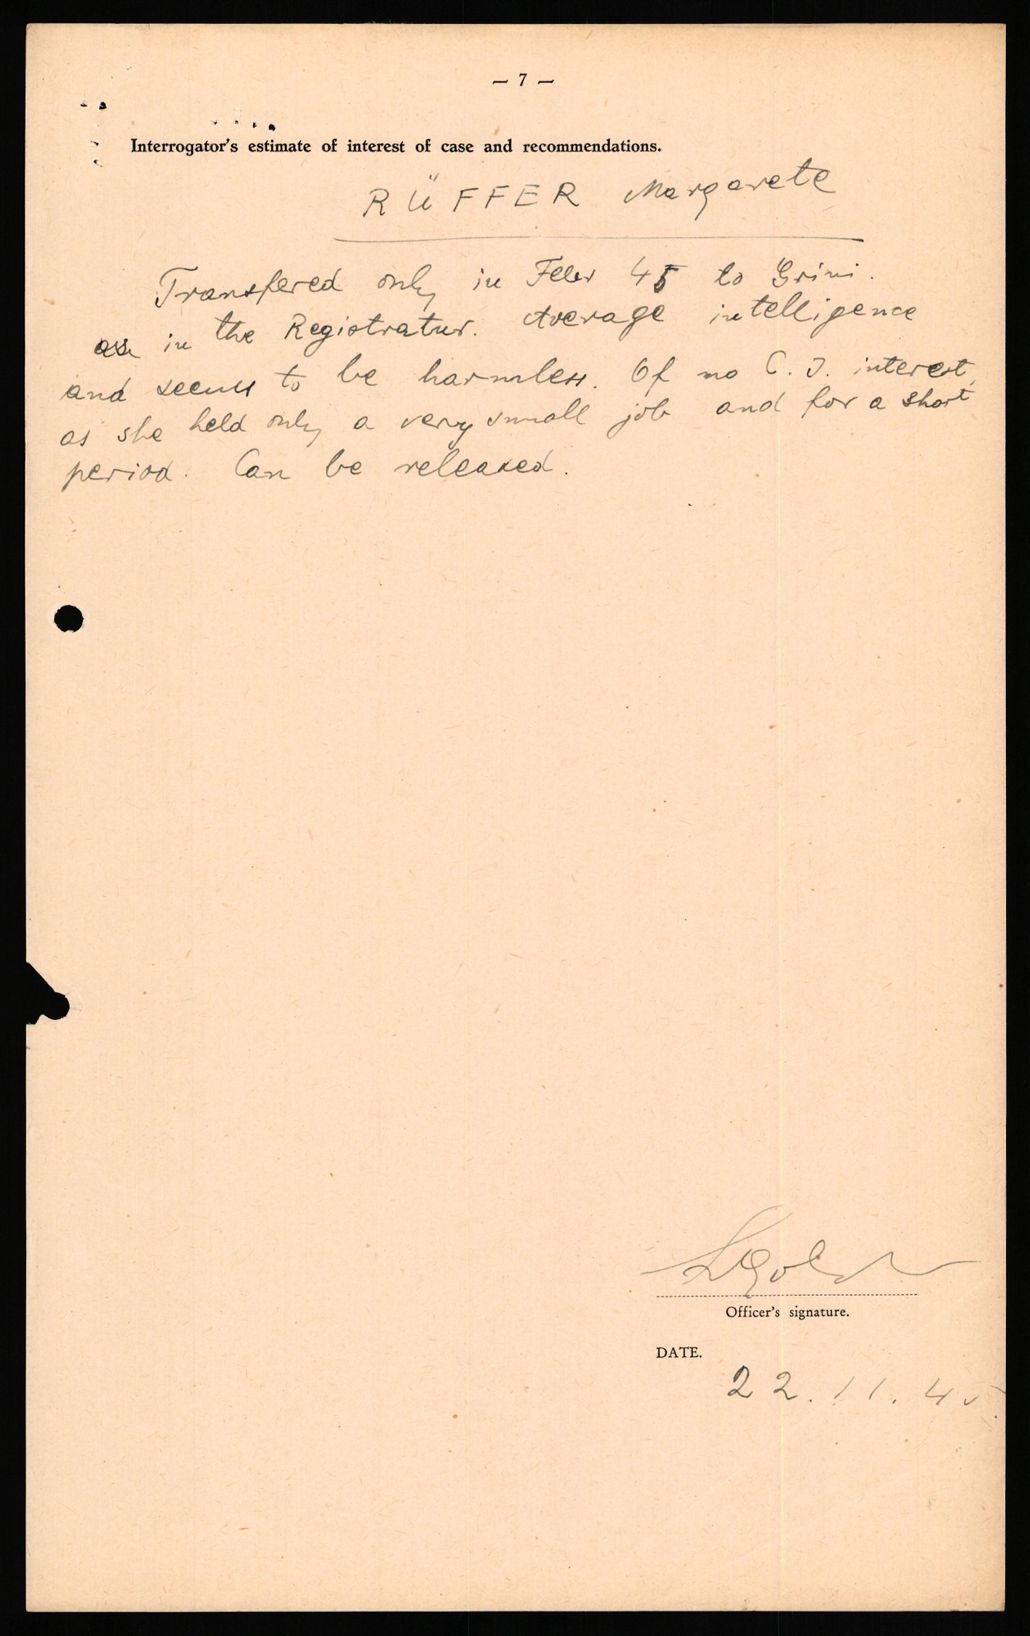 — 7 —
Interrogator's estimate of interest of case and recommendations.
RÜFFER Margarete
Transfered only in Febr 45 to Grini.
in the Registratur. Average intelligence
and seems to be harmless. Of no C. I. interest,
as she held only a very small job and for a short
period. Can be released.
Officer's signature.
DATE.
22.11.45.